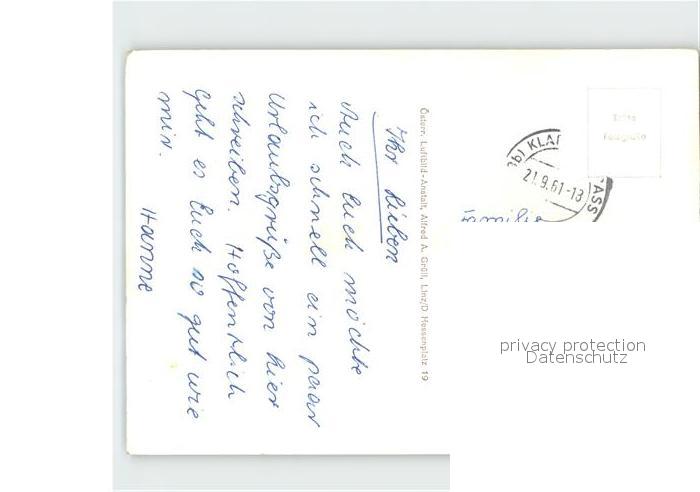 Ihr Lieben
Auch Euch möchte
ich schnell ein paar
Urlaubsgrüße von hier
schreiben. Hoffentlich
geht es Euch so gut wie
mir.
Hanne
Österr. Luftbild-Anstalt, Alfred A. Grüll, Linz/D Hessenplatz 19
KLAF
21.9.61-13
ASS
Familie
Bitte
privacy protection
Datenschutz